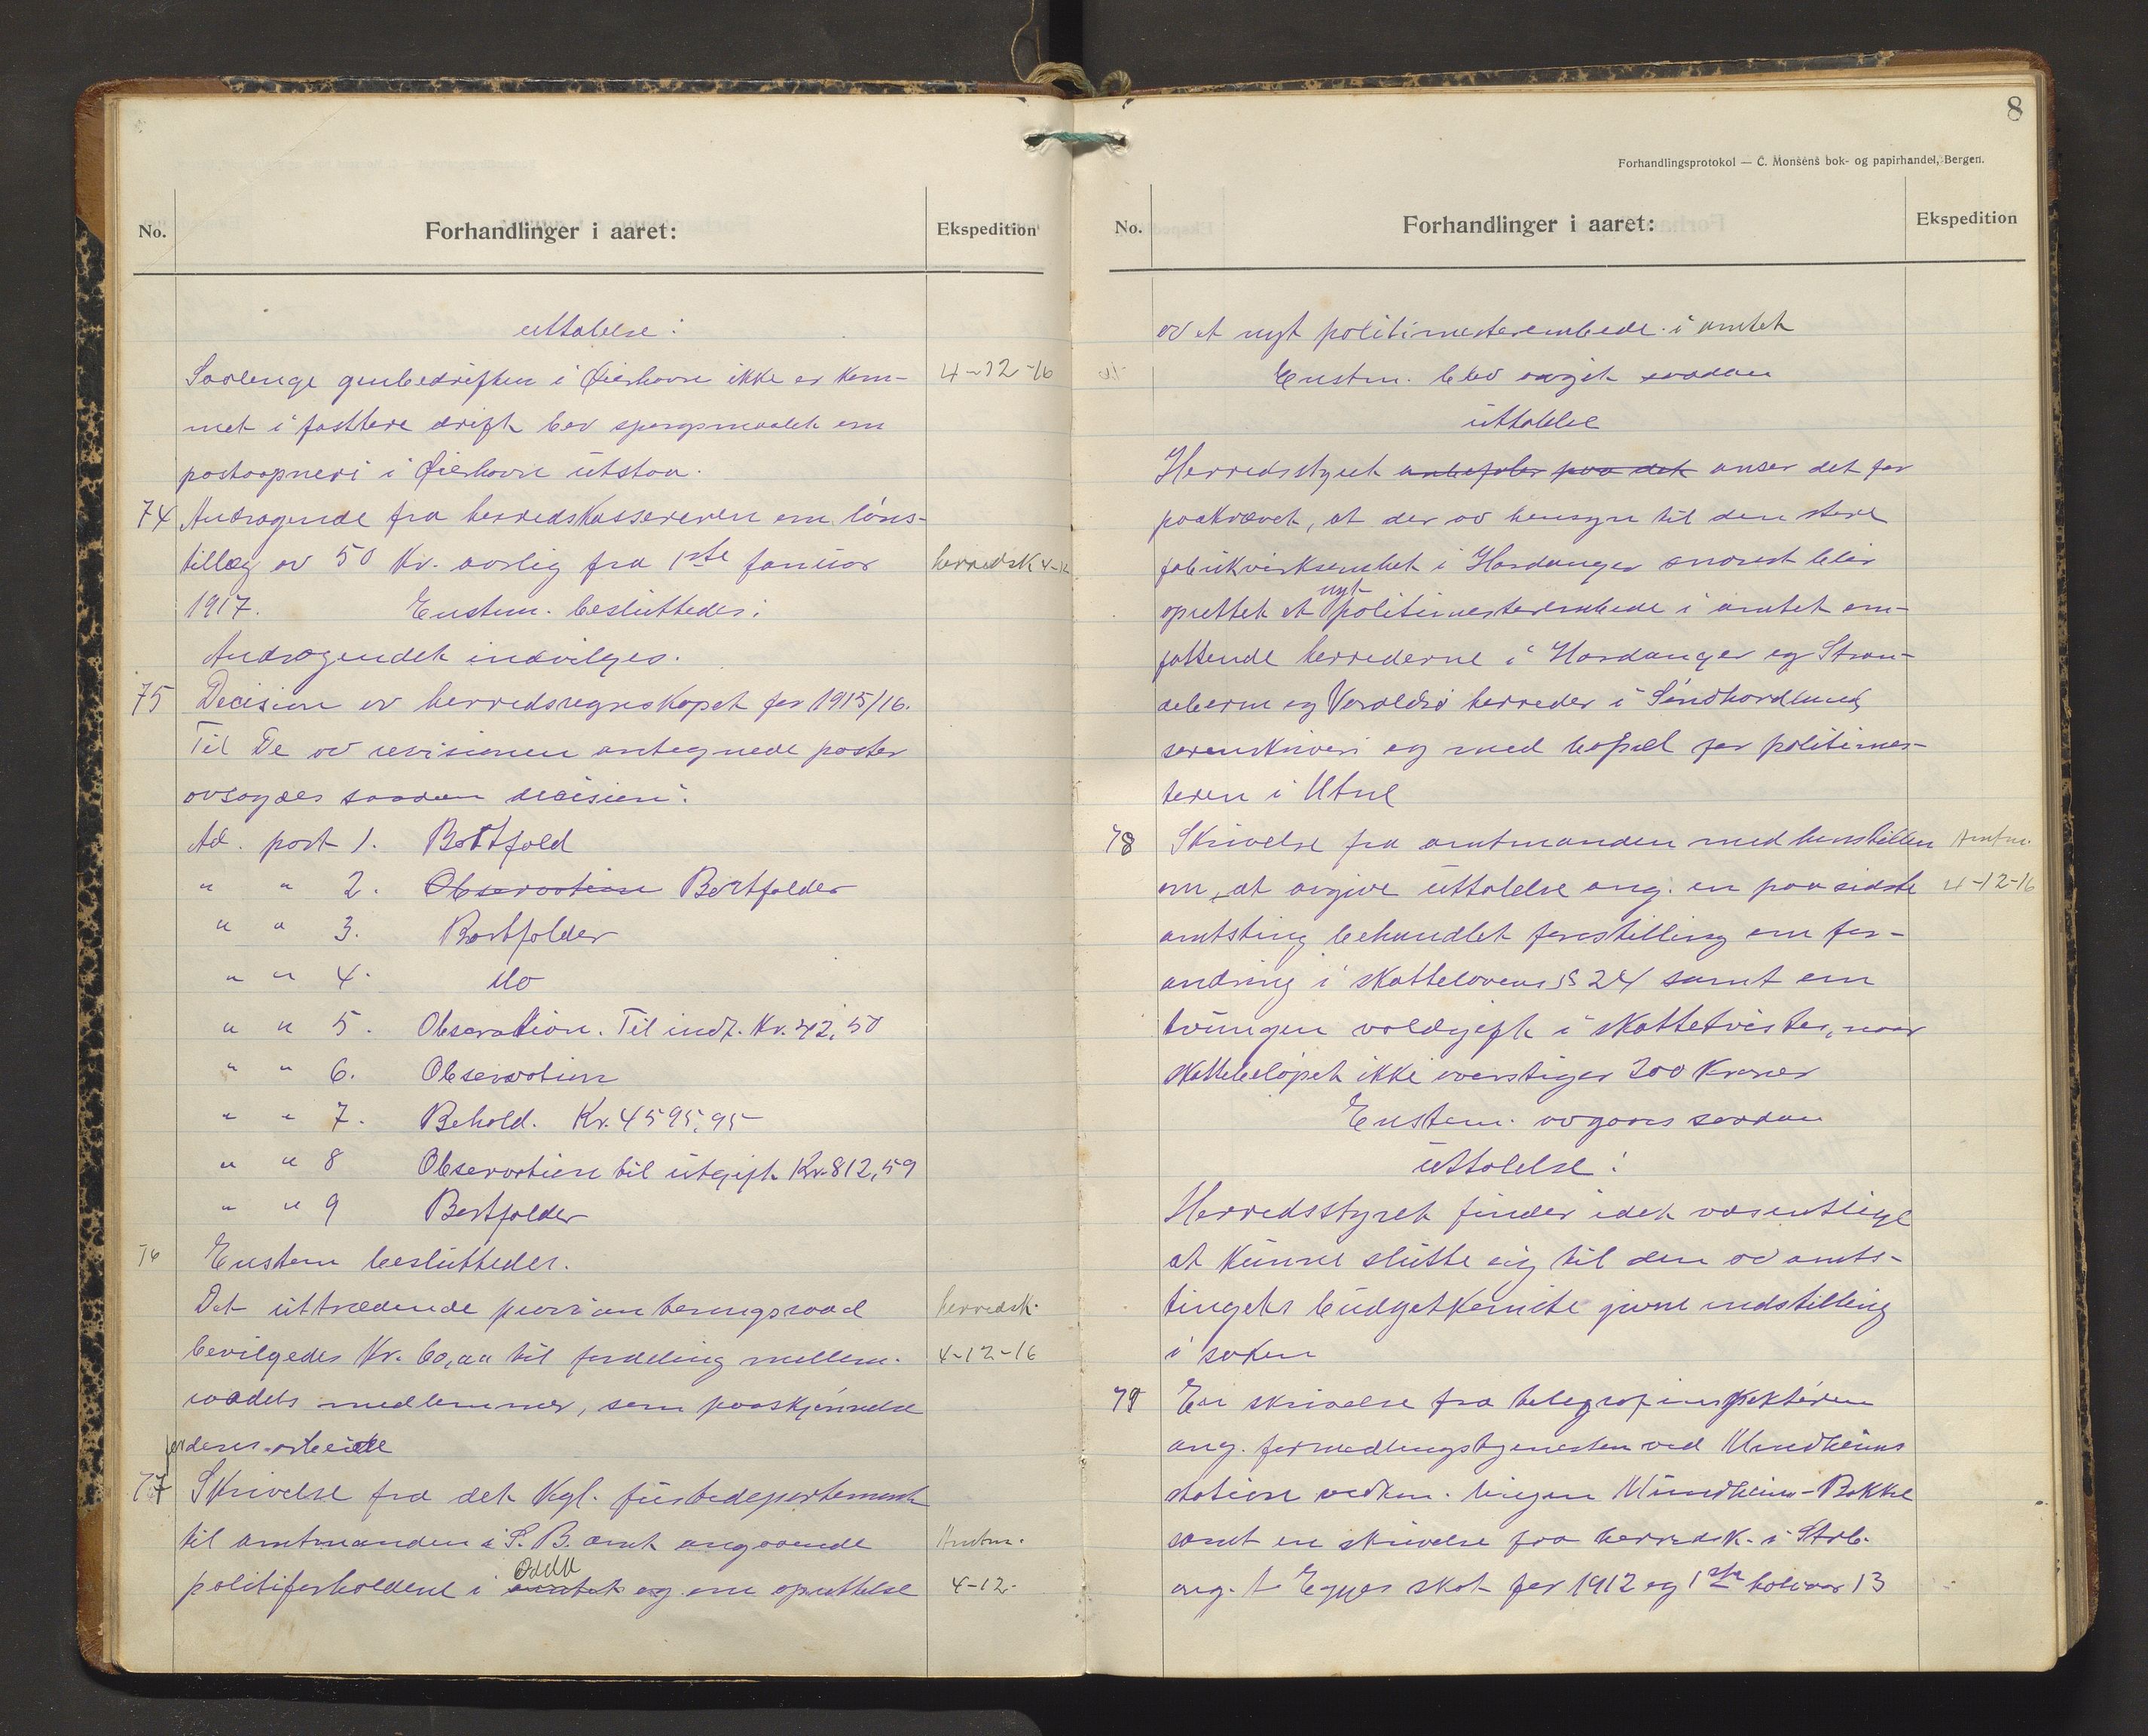 8
Forhandlingsprotokol — C. Monsens bok- og papirhandel, Bergen.
No.
Forhandlinger i aaret:
Ekspedition
uttalelse:
Saalenge grubedriften i Ølerhavn ikke er kom- 4-12-16
met i fastere drift bør spørgsmaalet om
postaapneri i utstaa.
74 Andragende fra herredskassereren om løns-
tillæg av 50 Kr. aarlig fra 1ste januar herredsk 4-12
1917. Enstem. besluttedes:
Andragendet indvilges.
75 Decision av herredsregnskapet for 1915/16.
Til De av revisionen antegnede poster
avsagdes saadan decision:
Ad. post 1. Bortfald
" " 2. Observation Bortfalder
" " 3. Bortfalder
" " 4. do
" " 5. Observation. Til indt. Kr. 42,50
" " 6. Observation
" " 7. Behold. Kr. 4595,95
" " 8 Observation til utgift Kr. 812,59
" " 9 Bortfalder
76 Enstem besluttedes.
Det uttrædende provianteringsraad herredsk.
bevilgedes Kr. 60,00 til fordeling mellem 4-12-16
raadets medlemmer, som paaskjønnelse
for deres arbeide
77 Skrivelse fra det Kgl. justisdepartement
til amtmanden i S. B. amt angaaende Amtm.
politiforholdene i Odda amtet og om oprettelse 4-12-
No.
Forhandlinger i aaret:
Ekspedition
av et nyt politimesterembede i amtet
Enstm. blev avgit saadan
uttalelse
Herredsstyret anbefaler paa det anser det for
paakrævet, at der av hensyn til den store
fabrikvirksomhet i Hardanger snarest blir
oprettet et nyt politimesterembede i amtet om-
fattende herrederne i Hardanger og Stran-
debarm og Varaldsø herreder i Søndhordland
sorenskriveri og med bopæl for politimes-
teren i Utne
78 Skrivelse fra amtmanden med henstillen Amtm.
om, at avgive uttalelse ang. en paa sidste 4-12-16
amtsting behandlet forestilling om for-
andring i skattelovens § 24 samt om
tvungen voldgift i skattetvister, naar
skattebeløpet ikke overstiger 200 Kroner
Enstem. avgaves saadan
uttalelse:
Herredsstyret finder i det væsentlige
at kunne slutte sig til den av amts-
tingets budgetkomite givne indstilling
i saken
79 En skrivelse fra telegrafinspektøren
ang. formedlingstjenesten ved Mundheims
station vedkom. linjen Mundheim-Bakke
samt en skrivelse fra herredsk. i Strb.
ang. skat for 1912 og 1ste halvaar 13